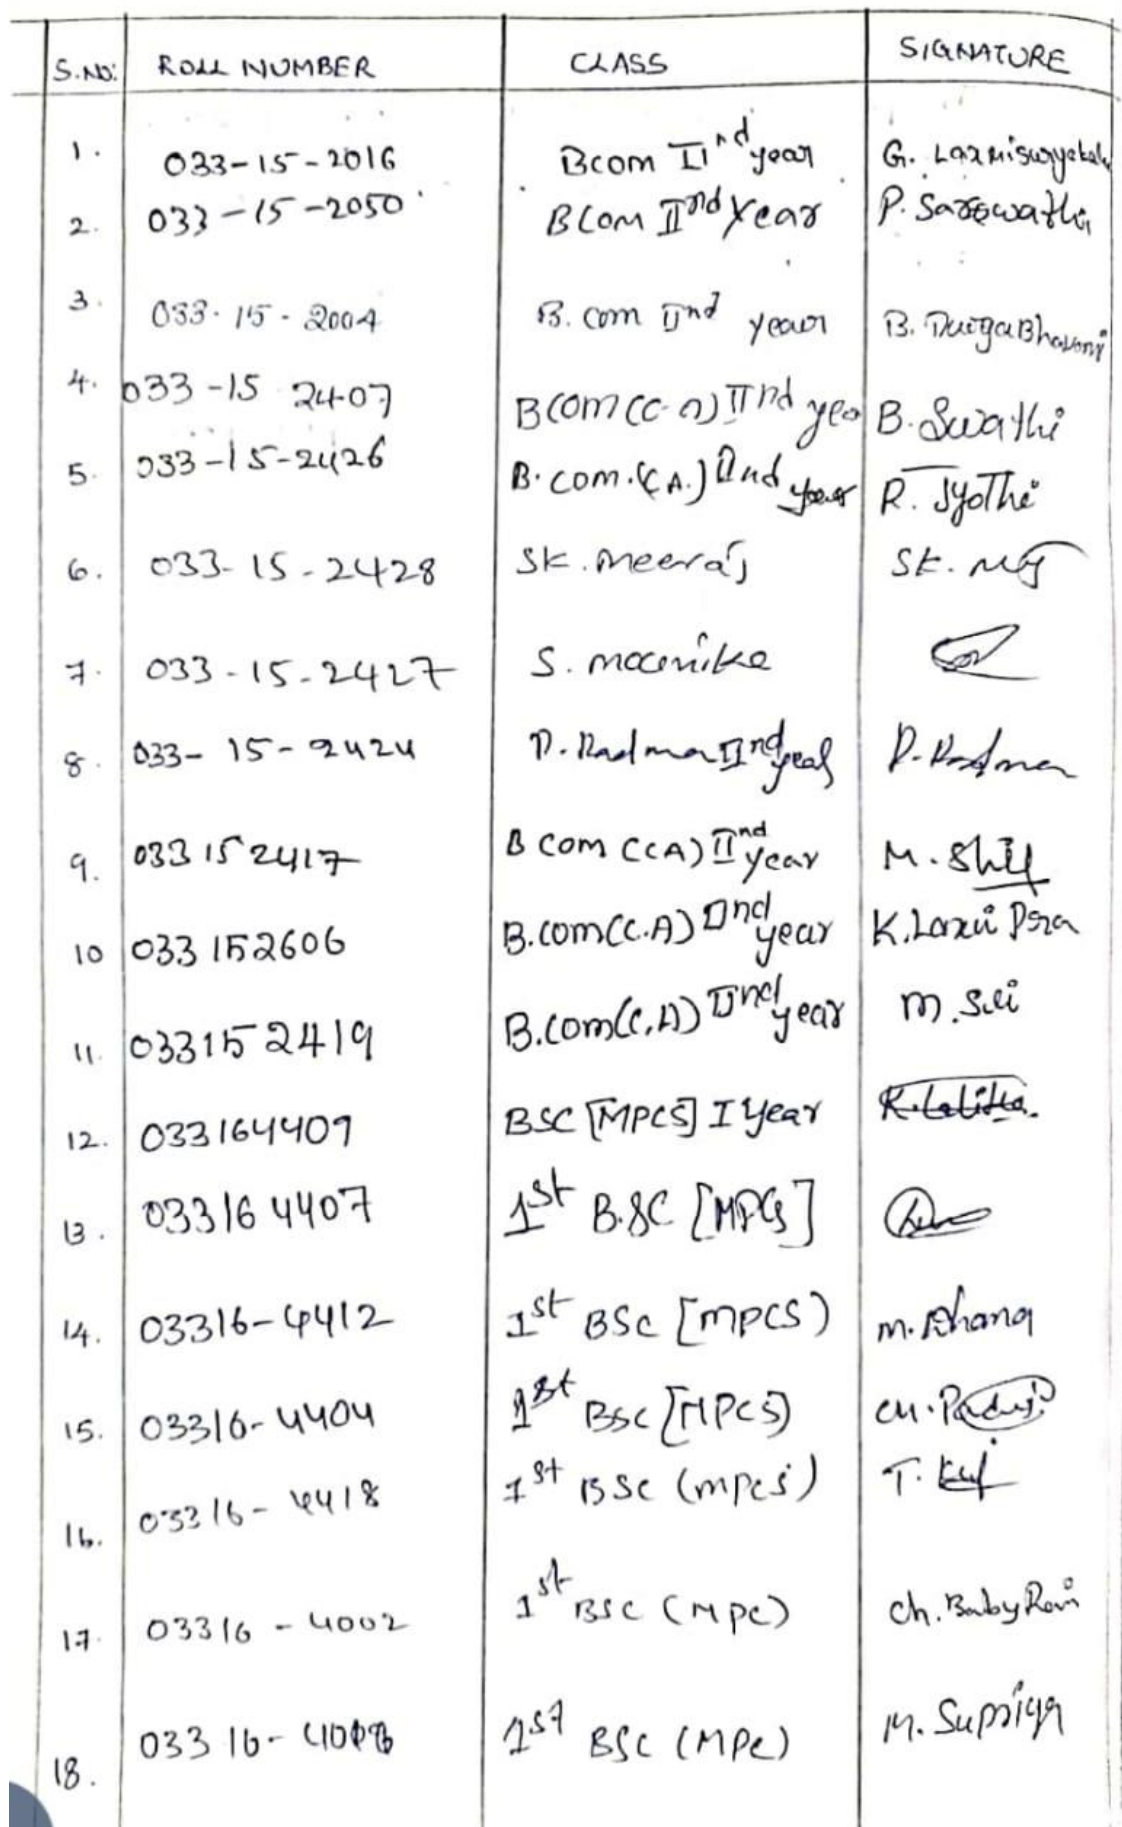 S.NO: ROLL NUMBER CLASS SIGNATURE
1. 033-15-2016 Bcom IInd year G.
2. 033-15-2050 BCom IInd Year P. Sareswathi
3. 033-15-2004 B.com IInd year B. DurgaBhavani
4. 033-15 2407 BCom (C.A) IInd yea B. Swathi
5. 033-15-2426 B.com.(CA.) IInd year R. Jyothi
6. 033-15-2428 SK.meeraj SK.
7. 033-15-2427 S. mounika
8. 033-15-2424 P. Padma IInd year P. Padma
9. 033 15 2417 B com (CA) IInd year M.
10 033 152606 B.com(C.A) IInd year
11. 033152419 B.com(C.A) IInd year M.
12. 033164409 BSC [MPCS] I Year K.Lalitha.
13. 033164407 1st B.SC [MPCS]
14. 03316-4412 1st BSc [MPCS) M. Dhana
15. 03316-4404 1st BSC [MPCS) CH.
16. 03316-4418 1st BSc (mpcs) T.
17. 03316-4002 1st BSC (MPC) Ch. Baby Rani
18. 03316- 1st BSC (MPC) M. Supriya